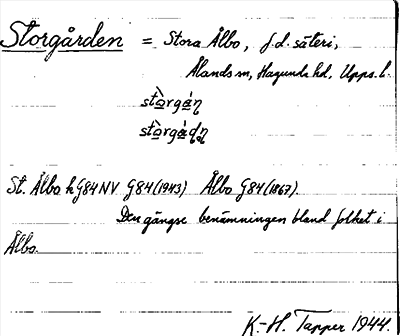 Storgården = Stora Ålbo, f.d. säteri,
Ålands sn, Hagunda hd, Upps. l.
St. Ålbo h G84NV G84 (1943) Ålbo G84 (1867).
Den gängse benämningen bland folket i
Ålbo.
K.-H. Tapper 1944.